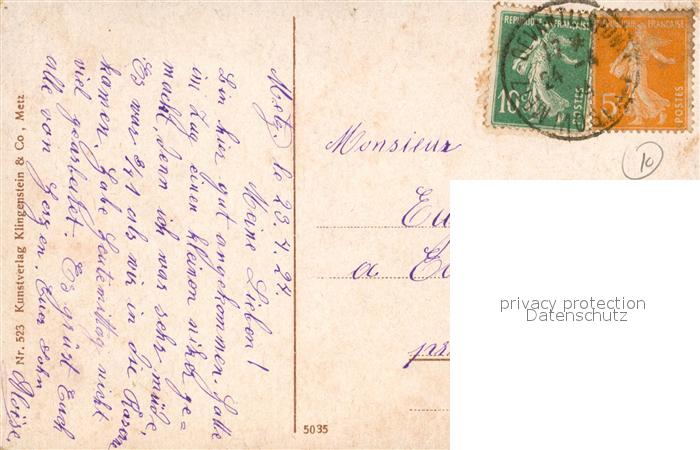 Metz, le 23.4.24
Meine Lieben!
Bin hier gut angekommen. Hatte
im Zug einen kleinen nicker ge-
macht, denn ich war sehr müde,
Es war 3/4 1 als wir in die Kaserne
kamen. Habe heutemittag nicht
viel gearbeitet. Es grüst Euch
alle von Herzen, Euer Sohn
Aloise
Nr. 523 Kunstverlag Klingenstein & Co, Metz
5035
REPUBLIQUE FRANÇAISE
10
POSTES
REPUBLIQUE FRANÇAISE
5
POSTES
24
10
Monsieur
Eu
a
privacy protection
Datenschutz